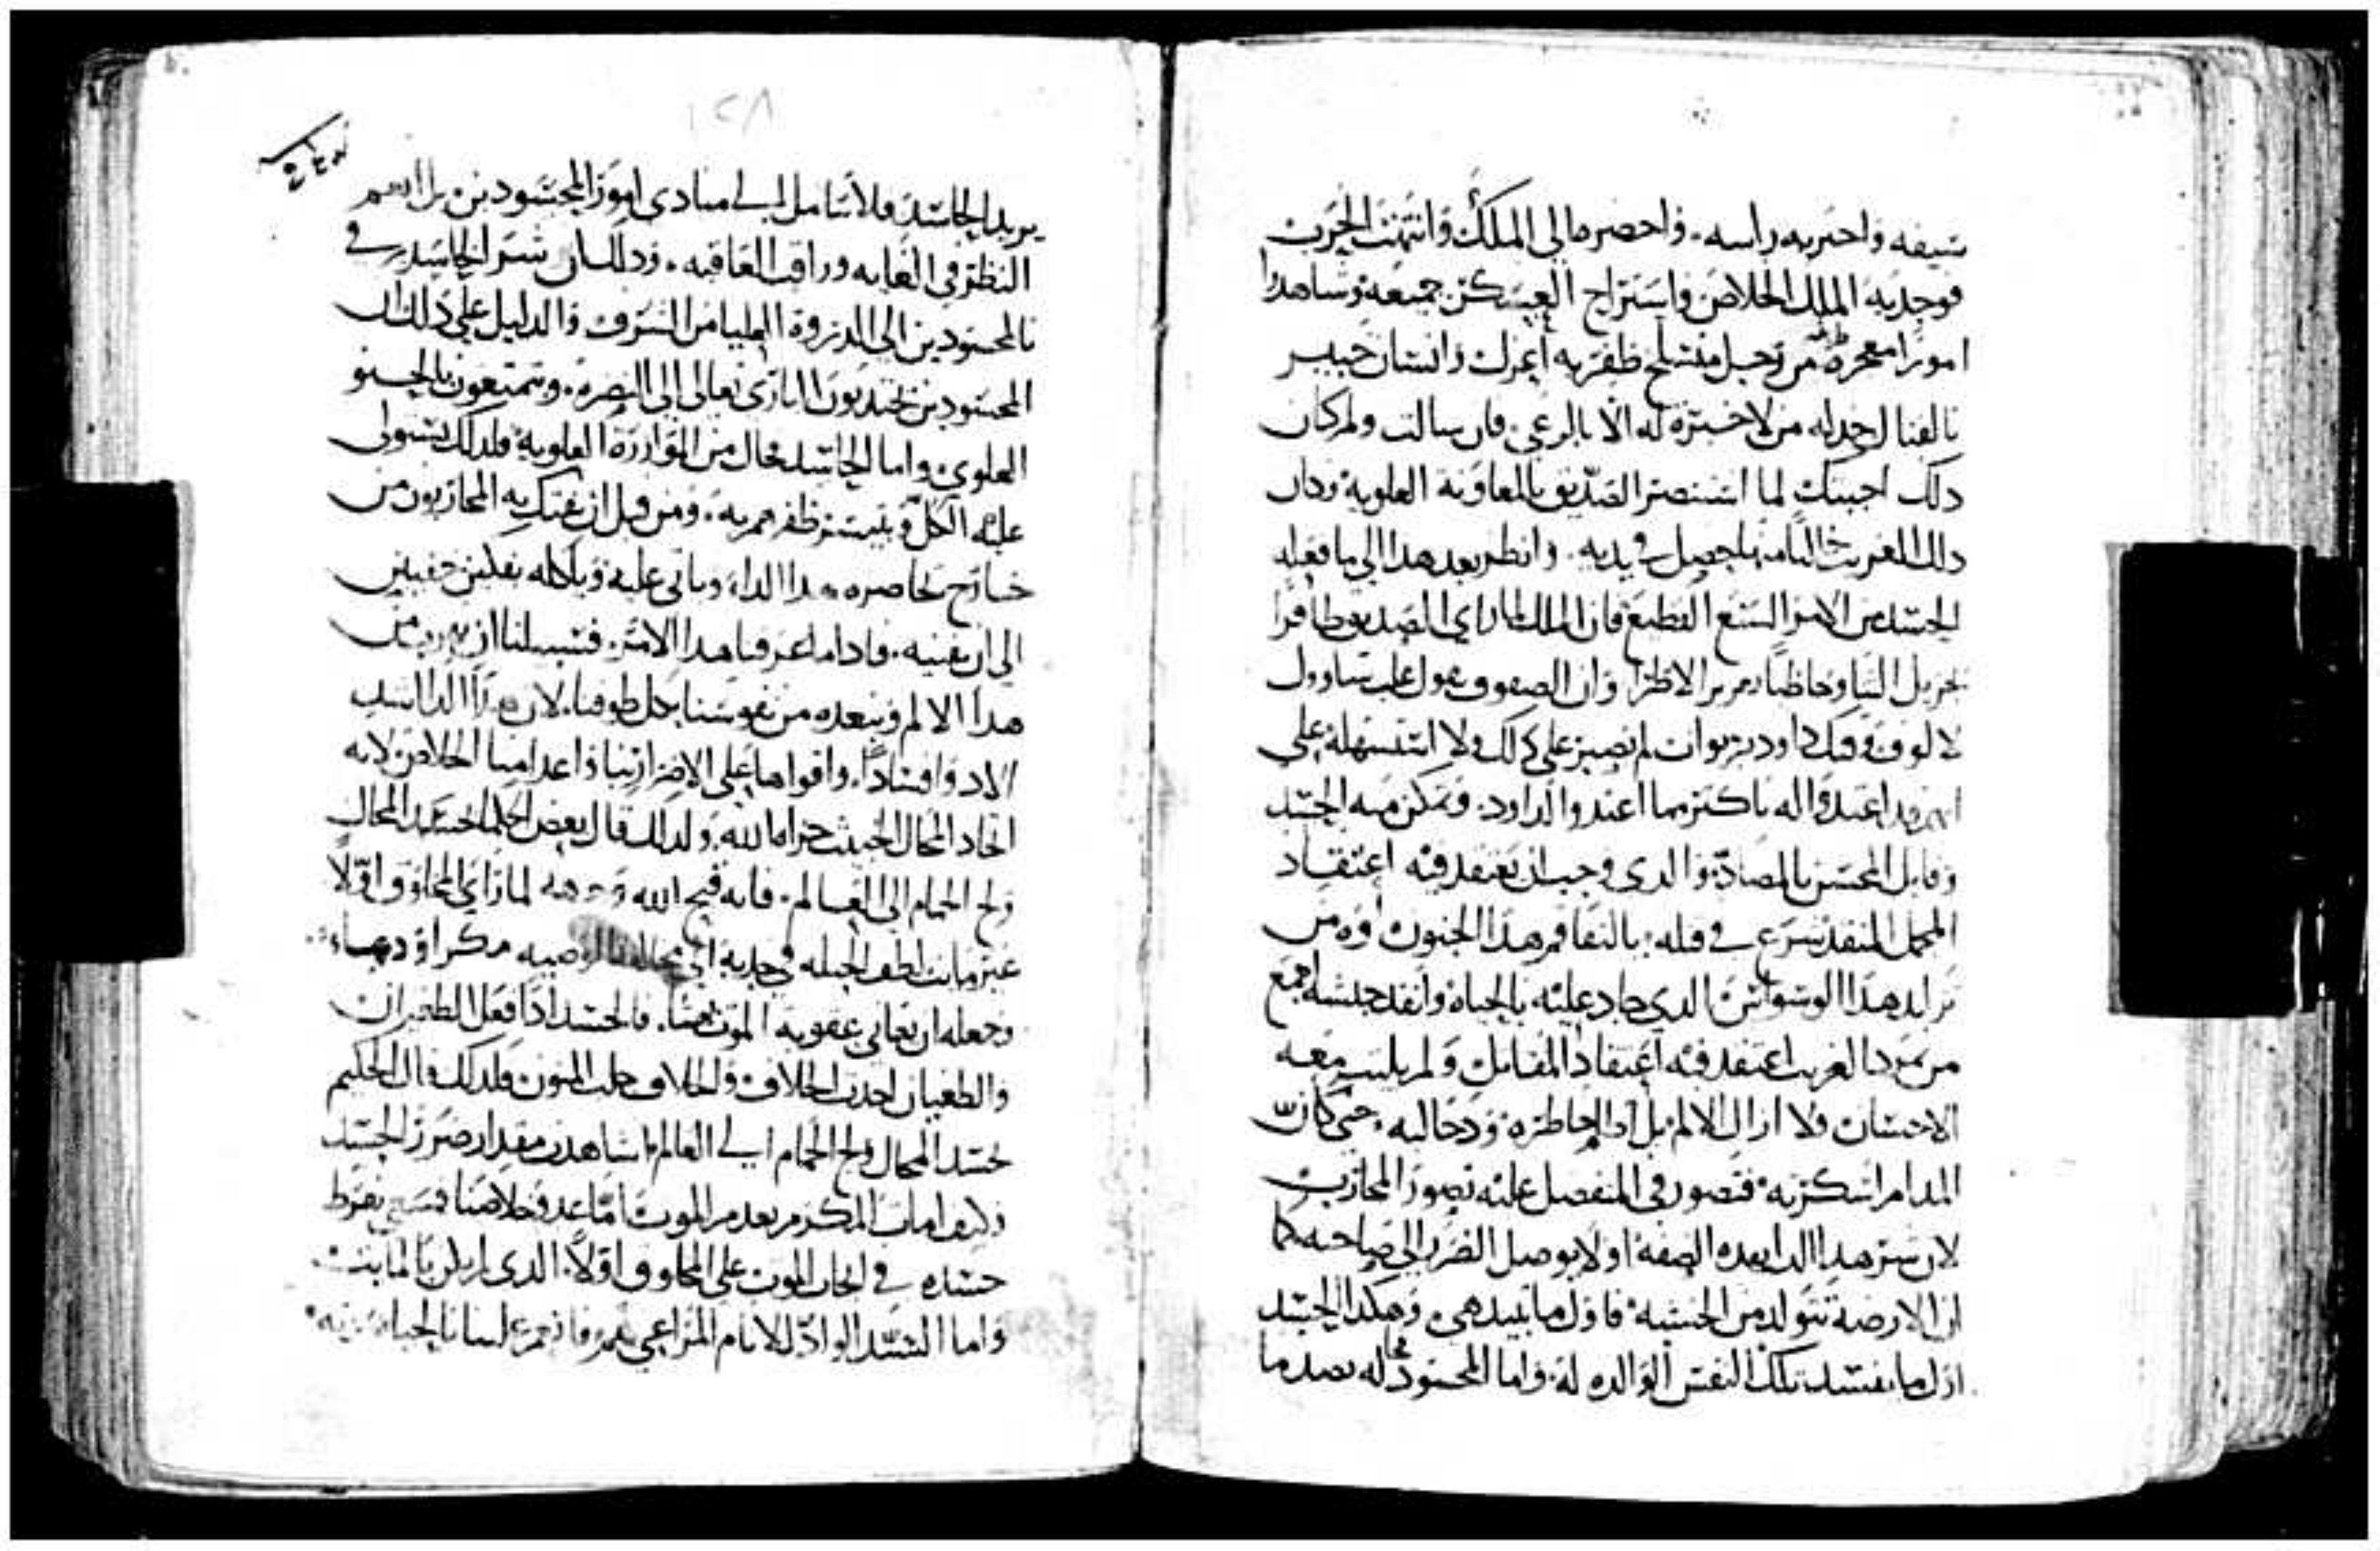 سيفه واحتز به راسه. واحضرها الى الملك وانتهت الحرب
فوجد به الملك الخلاص واستراح العسكر جميعه وشاهدوا
امورا معجزة من رجل متسلح ظفر به اعزل وانسان خبير
بالقتال جدله من لا خبرة له الا بالرعي. فان سالت ولم كان
ذلك اجبتك لما استنصر الصديق بالمعاونة العلوية وكان
ذلك الغريب خاليا منها حصل في يديه. وانظر بعد هذا الى ما فعله
الحسد من الامر الشنع الفظيع فان الملك لما راى الصديق ظافرا
وان الصفوف تقول غلب شاوول
الالوف وفتك داود بربوات لم يصبر على ذلك ولا استسهله على
انهم قد اعتدوا له باكثر مما اعتدوا لداود. وتمكن منه الحسد
وقابل المحسن بالمضادة والذي وجب ان يعتقد فيه اعتقاد
المجمل المنقذ شرع في قتله بالنفاقم هذا الجنون اوه من
هذا الوسواس الذي جاد عليه بالحياة وانقذ جيشه اجمع
من الغريب اعتقد فيه اعتقاد المقاتل ولم يلبث معه
الاحسان ولا ازال الالم بل خاطره حتى كان
المدام اسكرته فتصور في المتفضل عليه تصور المحارب
لان شر هذا الداء بهذه الصفة اولا يوصل الضرر الى صاحبه كما
ان الارضة تتولد من الخشبة فاول ما تبيد هي وهكذا الحسد
اول ما يفسد تلك النفس الوالدة له. واما المحسود فحاله بضد ما
١٢٨
يريد الحاسد فلا تتامل الى مبادى امور المحسودين بل انعم
النظر في الغاية وراقب العاقبة. وذلك ان شر الحاسد يرقي
بالمحسودين الى الذروة العليا من الشرف والدليل على ذلك ان
المحسودين يجتذبون البارى تعالى الى النصرة. ويتمتعون بالحنو
العلوي. واما الحاسد فخال من الموازرة العلوية ولذلك يستولى
عليه الكل ويتيسر ظفرهم به. ومن قبل ان يفتك به المحاربون من
خارج يحاصره هذا الداء وياتي عليه وياكله بفكين خفيين
الى ان يفنيه. فاذا ما عرفنا هذا الامر. فسبيلنا ان نهرب من
هذا الالم ونبعده من نفوسنا بكل طوقنا. لان هذا الداء اشد
الادواء فسادا. واقواها على الاضرار بنا واعدامنا الخلاص لانه
اتخاذ المحال الخبيث حراما لله ولذلك قال بعض الحكما بحسد المحال
ولج الحمام الى العالم. فانه قبح الله وجهه لما راى المخلوق اولا
غير مايت لطف الحيلة في جذبه الى مخالفة الوصية مكرا ودهاء.
وجعله ان يعاني عقوبة الموت بهتا. فالحسد اذا فعل الطغيان
والطغيان احدث الخلاف والخلاف جلب المنون ولذلك قال الحكيم
بحسد المحال ولج الحمام الى العالم. اشاهدت مقدار ضرر الحسد
وكيف امات المكرم بعدم الموت اما عدو خلاصنا فشرع بفرط
حسده في انحاث الموت على المخلوق اولا. الذي لم يكن بالمايت.
واما السيد الواد للانام المراعي لهم فانعم علينا بالحياة بموته.